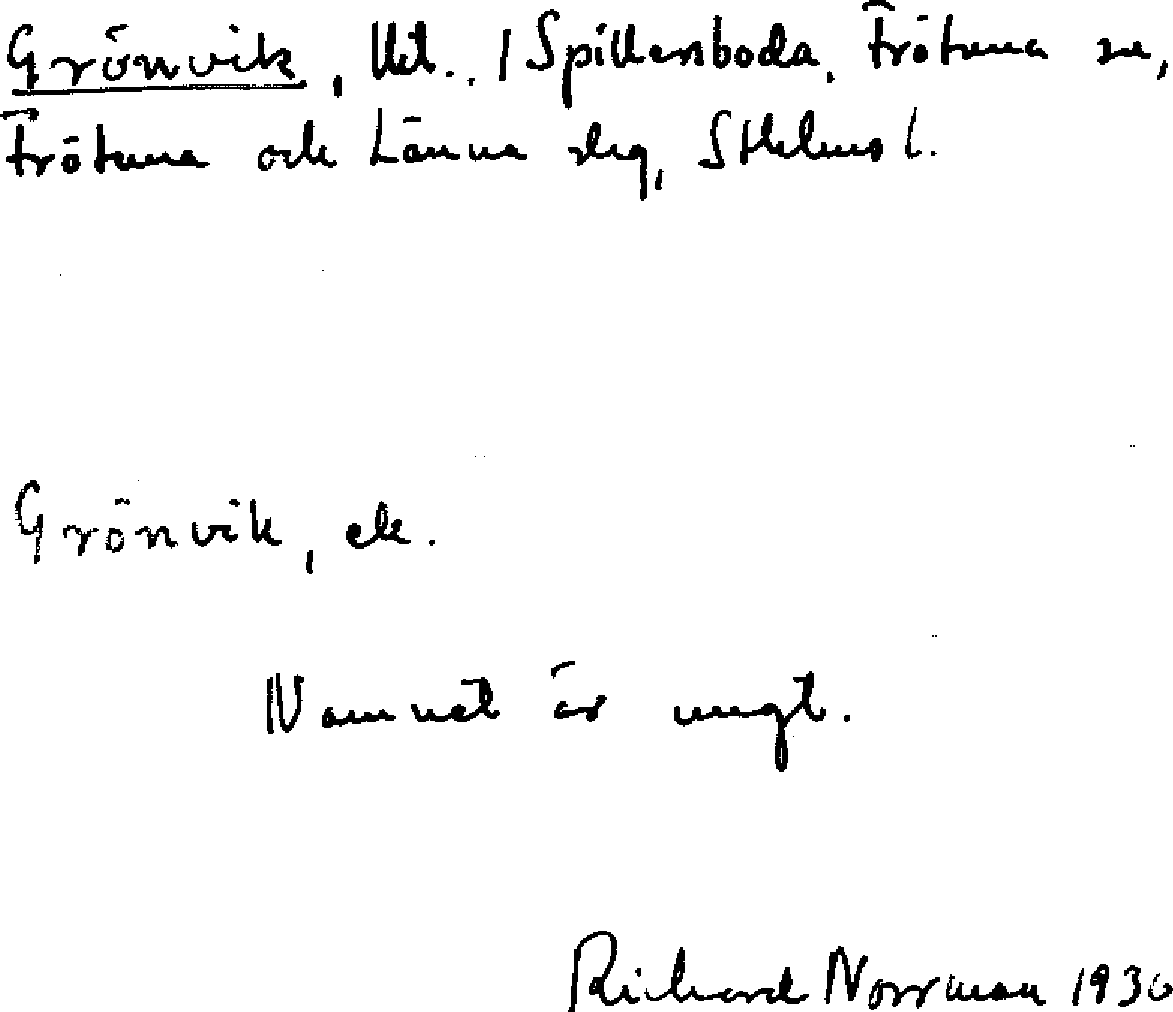 Grönvik, lht., /Spillersboda, Frötuna sn,
Frötuna och Länna slg, Sthlms l.
Grönvik, ek.
Namnet är ungt.
Richard Norrman 1930